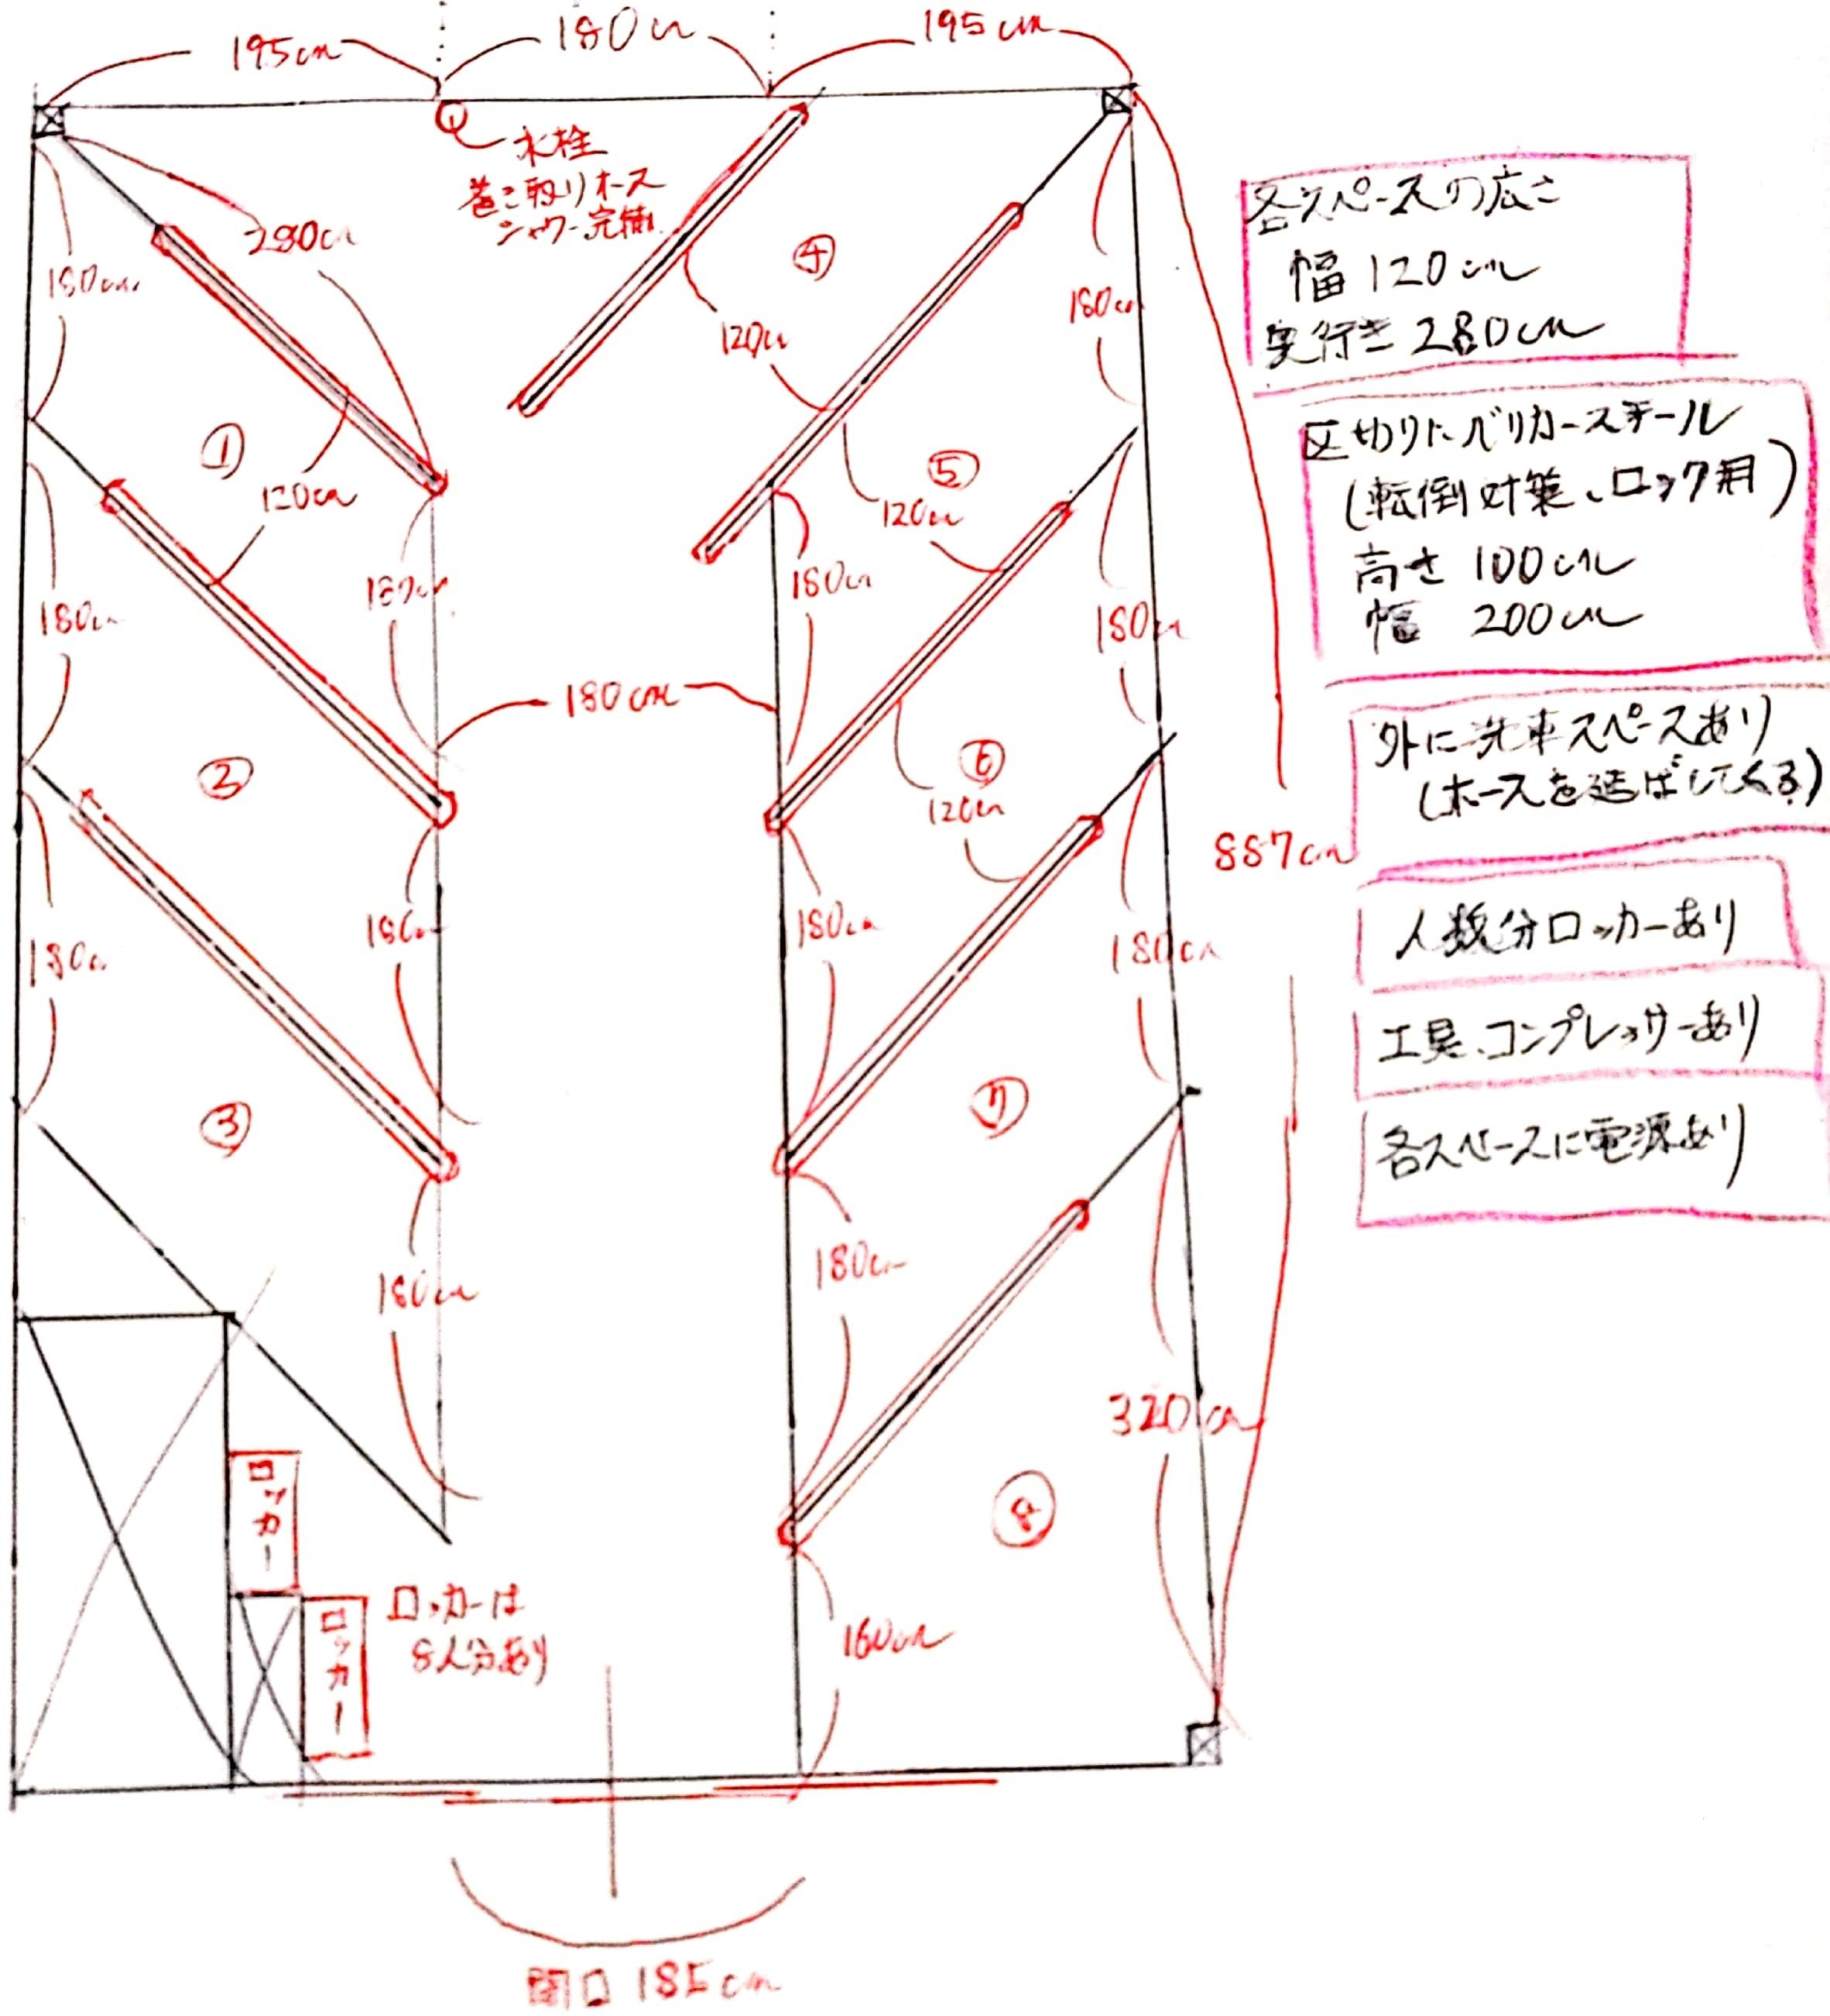 195cm
180cm
195cm
水栓
巻き取りホース
シャワー完備
280cm
180cm
④
120cm
180cm
①
120cm
⑤
120cm
180cm
180cm
180cm
180cm
180cm
②
⑥
120cm
887cm
180cm
180cm
180cm
180cm
③
⑦
180cm
180cm
320cm
⑧
ロッカー
ロッカー
ロッカーは
8人分あり
160cm
開口 185cm
各スペースの広さ
幅 120cm
奥行き 280cm
区切りにバリカースチール
(転倒対策、ロック用)
高さ 100cm
幅 200cm
外に洗車スペースあり
(ホースを延ばしてくる)
人数分ロッカーあり
工具、コンプレッサーあり
各スペースに電源あり